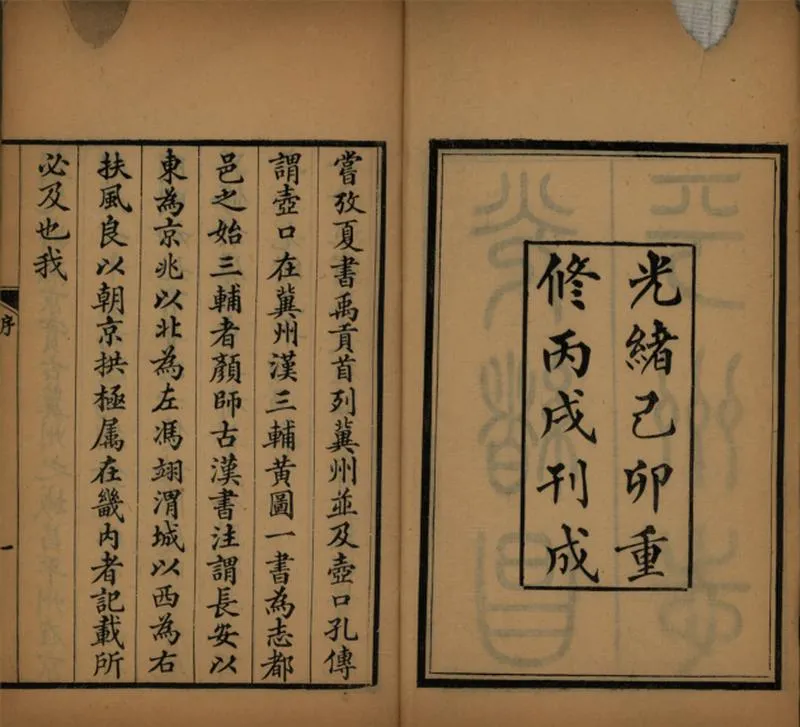 光緒己卯重
修丙戌刊成
嘗攷夏書禹貢首列冀州並及壺口孔傳
謂壺口在冀州漢三輔黄圖一書為志都
邑之始三輔者顏師古漢書注謂長安以
東為京兆以北為左馮翊渭城以西為右
扶風良以朝京拱極属在畿内者記載所
必及也我
序
一